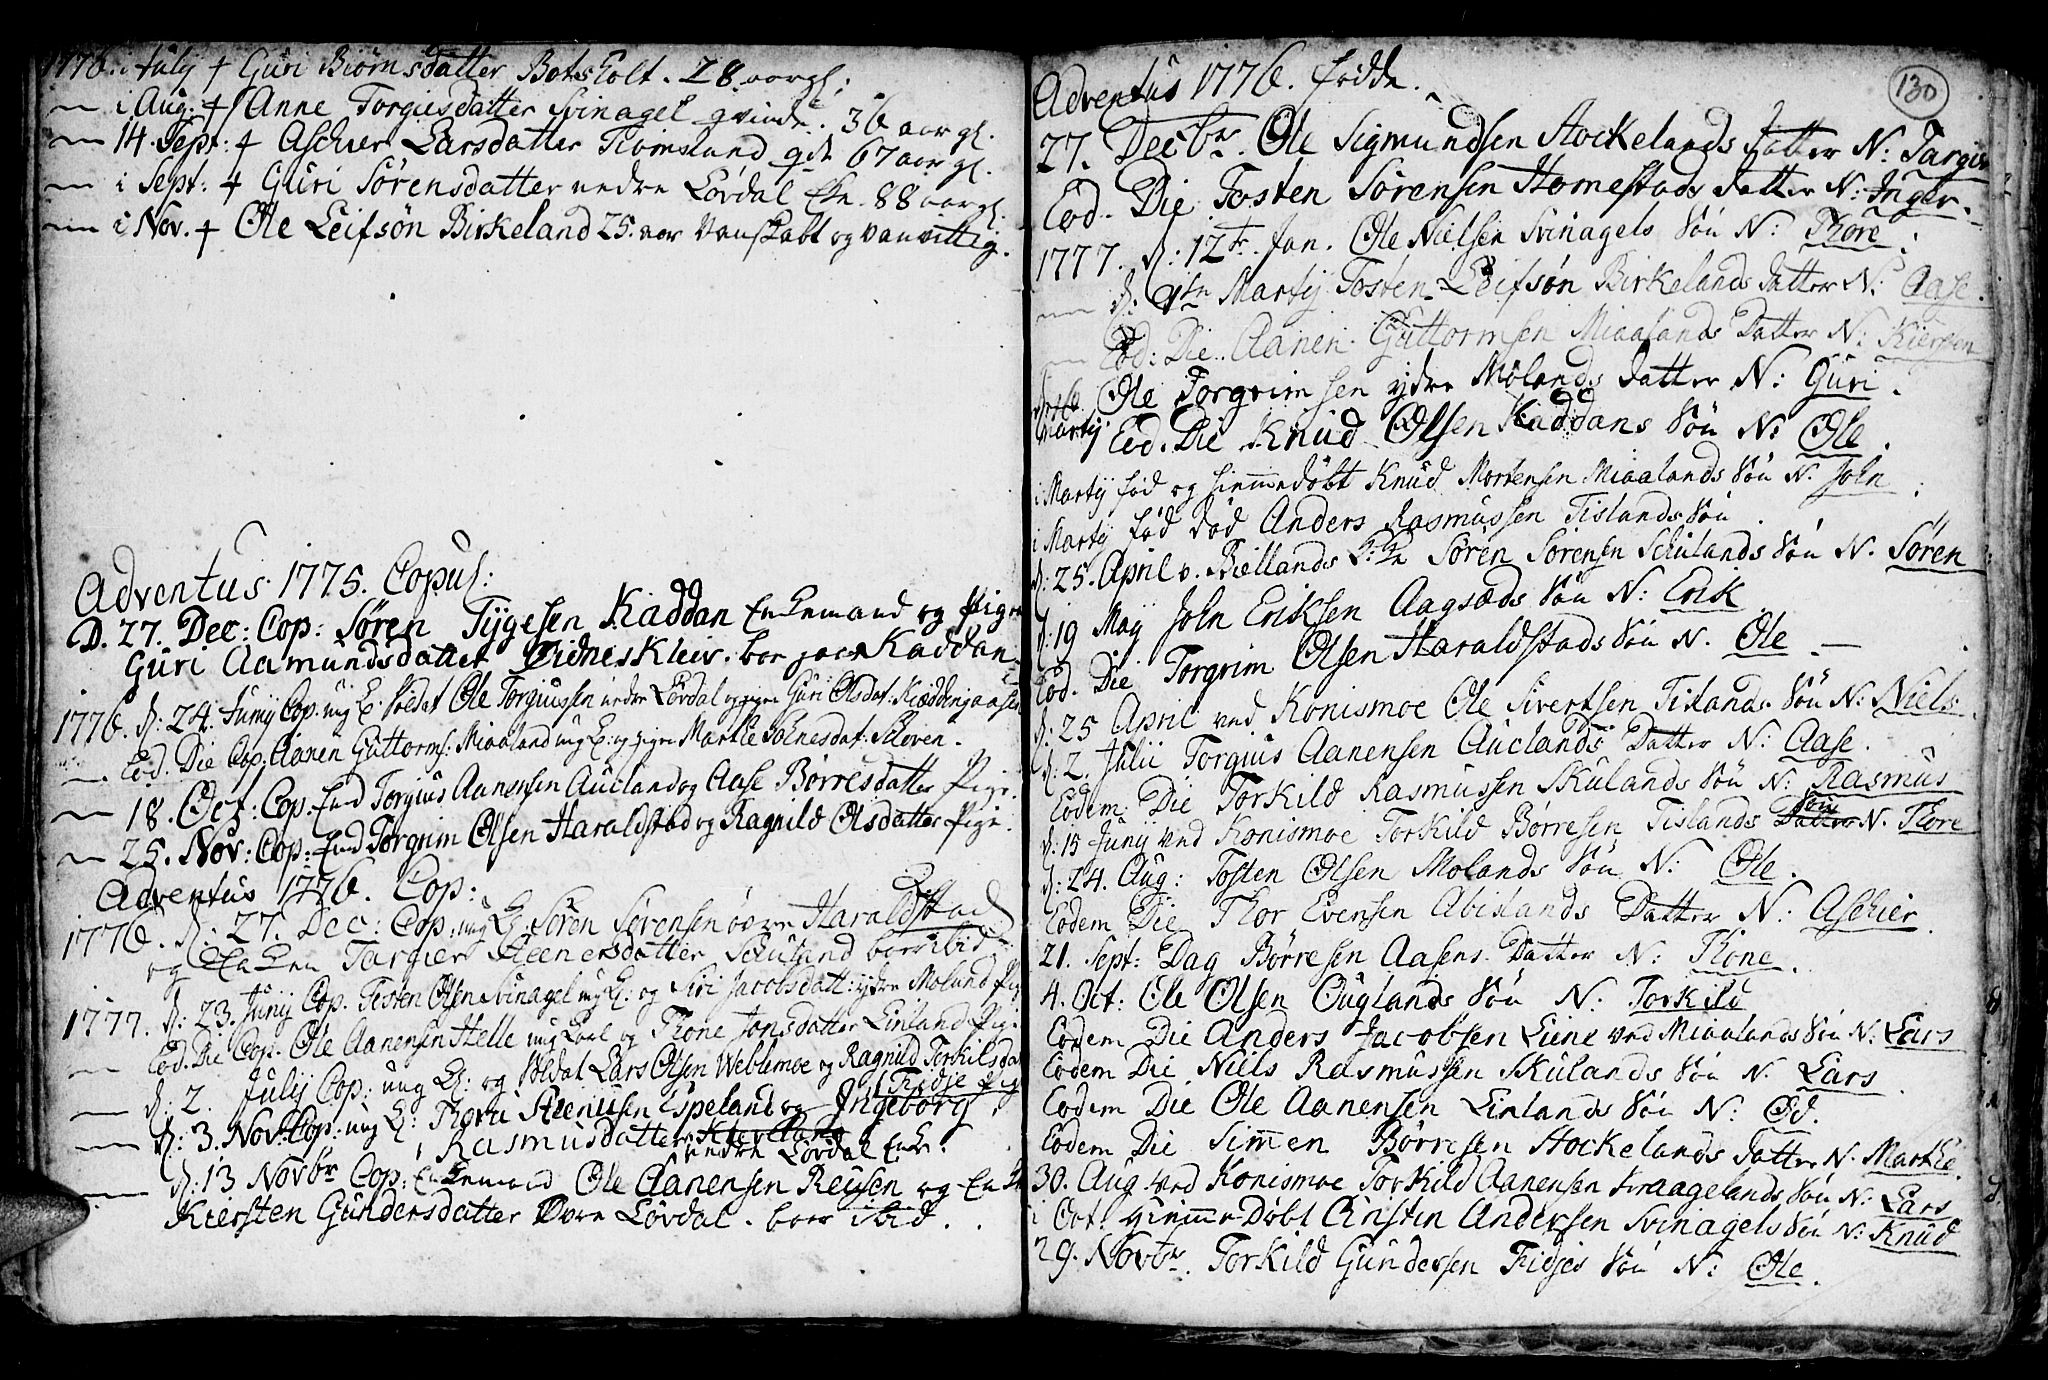 1776. i July + Guri Biörnsdatter Botsholt. 28 aar gl:
— i Aug: + Anne Torgiusdatter Svinagel qvinde. 36 aar gl.
— 14. Sept: + Aschier Larsdatter Tiomsland 67 aar gl.
— i Sept: + Guri Sörensdatter nedre Lövdal Enke. 88 aar gl.
— i Nov. + Ole Leifsøn Birkeland 25. aar vanskabt og vanvittig.
Adventus 1775. Copul:
D. 27. Dec: Cop: Sören Tygesen Kaddan Enkemand og Pigen
Guri Aamundsdatter Eidneskleiv. boer paa Kaddan
1776. d: 24. Junij Cop. ung K: Soldat Ole Torgiussen nedre Lövdal og pigen Guri Olsdat:
— Eod. Die Cop: Aanen Guttorms: Miaaland ung K: og pigen Marthe Skoven.
— 18. Oct: Cop. Torgius Aanensen Aucland og Aase Börresdatter Pige.
— 25. Nov: Cop: Torgrim Olsen Haraldstad og Ragnild Olsdatter Pige.
Adventus 1776. Cop:
1776. d: 27. Dec: Cop: ung K: Sören Sörensen övre Haraldstad
og Enken Targier Steenersdatter Schuland boer ibid:
1777. d: 23. Junij Cop. Tosten Olsen Svinagel ung K: og Siri Jacobsdatt: ydre Moland Pig
— Eod. Die Cop. Ole Aanensen Helle ung Karl og Thone Jonsdatter Linland Pige
— d: 2. Julij Cop: ung K: og Soldat Lars Olsen Weblemoe og Ragnild Torkilsdat
Fridje Pig
— d: 3. Nov: Cop: ung K: Thore Steensen Espeland og Ingeborg
Rasmusdatter nedre Lövdal Enke.
— d: 13 Novbr Cop: Enkemand Ole Aanensen Reysen og Enken
Kiersten Gundersdatter Övre Lövdal. boer ibid.
130
Adventus 1776. födde.
27. Decbr. Ole Sigmundsen Stockelands Datter N: Targier
Eod. Die Tosten Sörensen Homestads datter N: Inger.
1777. d: 12te Jan. Ole Nielsen Svinagels Sön N: Thore.
— d: Martij Tosten Leifsøn Birkelands datter N: Aase.
— Eod: Die. Aanen Guttormsen Miaalands Datter N: Kiersten
Martij Ole Torgrimsen ydre Molands datter N: Guri.
Eod. Die Knud Olsen Kaddans Sön N: Ole.
i Martij föd og hiemmedöbt Knud Mortensen Miaalands Sön N. John
i Martij föd död Anders Rasmussen Tislands Sön
d: 25. April v. Biellands Sören Sörensen Schulands Sön N. Sören
d: 19 Maij John Eriksen Aagsæds Sön N: Erik
Eod. Die Torgrim Olsen Haraldstads Sön N. Ole —
d: 25 April ved Konismoe Ole Sivertsen Tislands Sön N: Niels.
d: 2. Julii Torgius Aanensen Auclands Datter N: Aase.
Eodem Die Torkild Rasmussen Skulands Sön N: Rasmus
Sön
d: 15 Junij ved Konismoe Torkild Börresen Tislands Datter N. Thore
d: 24. Aug: Tosten Olsen Molands Sön N: Ole.
Eodem Die Thor Evensen Abislands Datter N: Aschier
21. Sept: Dag Börresen Aasens Datter N: Thone.
4. Oct: Ole Olsen Öuglands Sön N: Torkild
Eodem Die Anders Jacobsen Liene ved Miaalands Sön N: Lars
Eodem Die Niels Rasmussen Skulands Sön N. Lars
Eodem Die Ole Aanensen Linlands Sön N: Od.
Eodem Die Simen Börresen Stockelands Datter N. Marthe
30. Aug ved Konismoe Torkild Aanensen Kraagelands Sön N: Lars
i Oct: hiemmedöbt Cristen Andersen Svinagels Sön N: Knud
29. Novbr. Torkild Gundersen Fridjes Sön N: Ole.